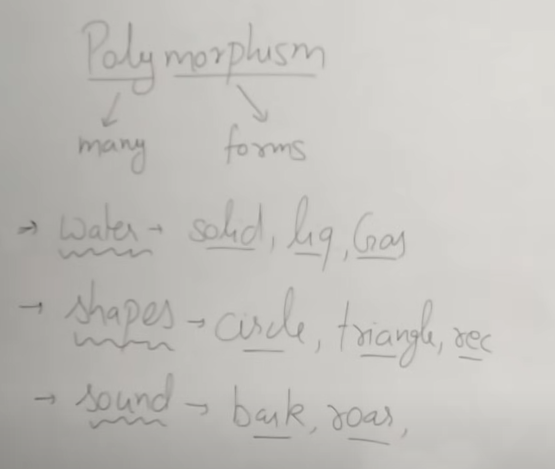 Polymorphism
many forms
→ Water → solid, liq, Gas
→ shapes → circle, triangle, rec
→ sound → bark, roar,